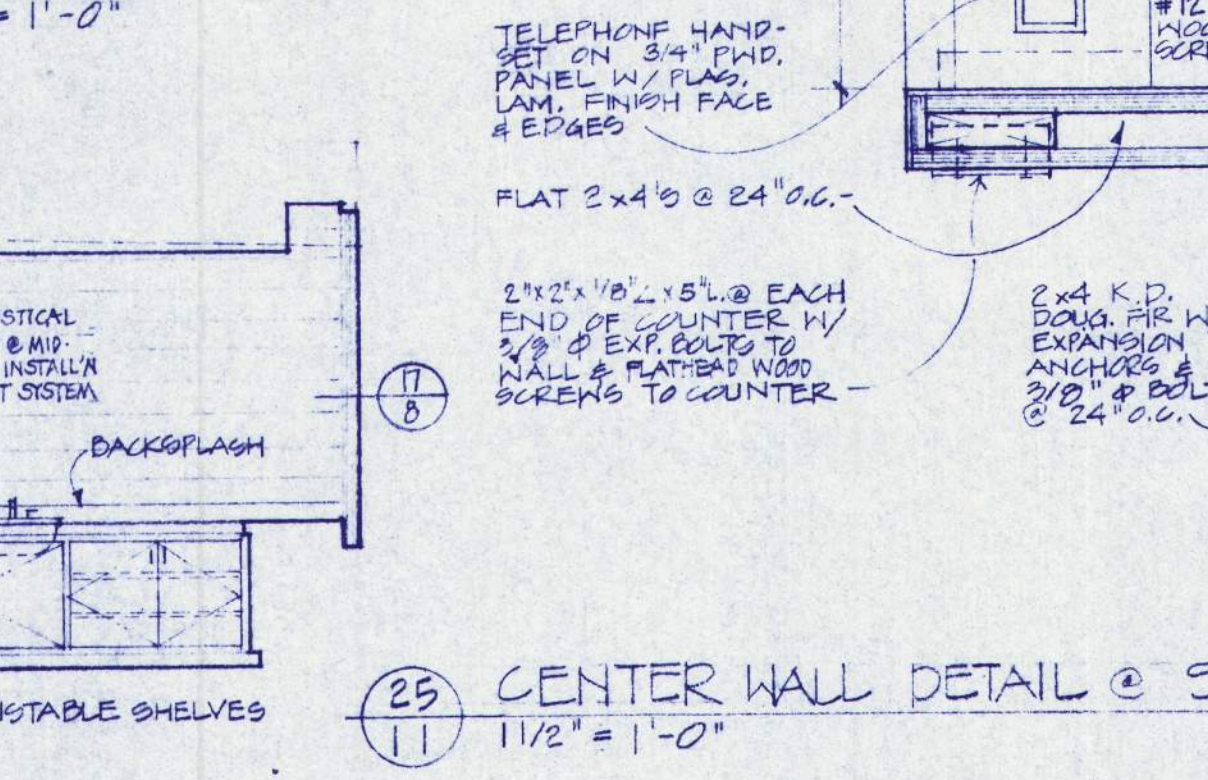 = 1'-0"
TELEPHONE HAND-
SET ON 3/4" PWD.
PANEL W/ PLAS.
LAM. FINISH FACE
& EDGES
#12
SCR
FLAT 2x4'S @ 24" O.C.-
2"x2"x 1/8" ∠ x5"L. @ EACH
END OF COUNTER W/
3/8" Φ EXP. BOLTS TO
WALL & FLATHEAD WOOD
SCREWS TO COUNTER -
2x4 K.D.
DOUG. FIR W
EXPANSION
ANCHORS &
3/8" Φ BOL
@ 24" O.C.
STICAL
@ MID-
INSTALL'N
T SYSTEM
17
8
BACKSPLASH
USTABLE SHELVES
25
11
CENTER WALL DETAIL @ S
1 1/2" = 1'-0"